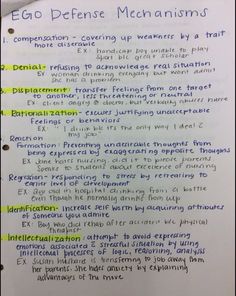 EGO Defense Mechanisms
1. Compensation - Covering up weakness by a trait
more desirable
EX: handicap boy unable to play
sport b/c great scholar
2. Denial - refusing to acknowledge real situation
EX woman drinking everyday but wont admit
she has a problem
3. Displacement - transfer feelings from one target
to another, less threatening or neutral
EX: client angry @ doctor, but verbally abuses nurse
4. Rationalization - excuses justifying unacceptable
feelings or behaviors
EX: "I drink b/c its the only way I deal c
my job"
5. Reaction
Formation: Preventing undesirable thoughts from
being expressed by exaggerating opposite thoughts
EX Jane hates nursing, did it to please parents
speaks to students about excellence of nursing
6. Regression - responding to stress by retreating to
earlier level of development
EX Boy and in hospital drinking from a bottle
even though he normally drinks from cup
Identification - increase self worth by acquiring attributes
of someone you admire
EX: Boy who did rehab after accident b/c physical
therapist
Intellectualization - attempt to avoid expressing
emotions associated c stressful situation by using
intellectual processes of logic, reasoning, analysis
EX Susan husband is transfering to job away from
her parents. She hides anxiety by explaining
advantages of the move